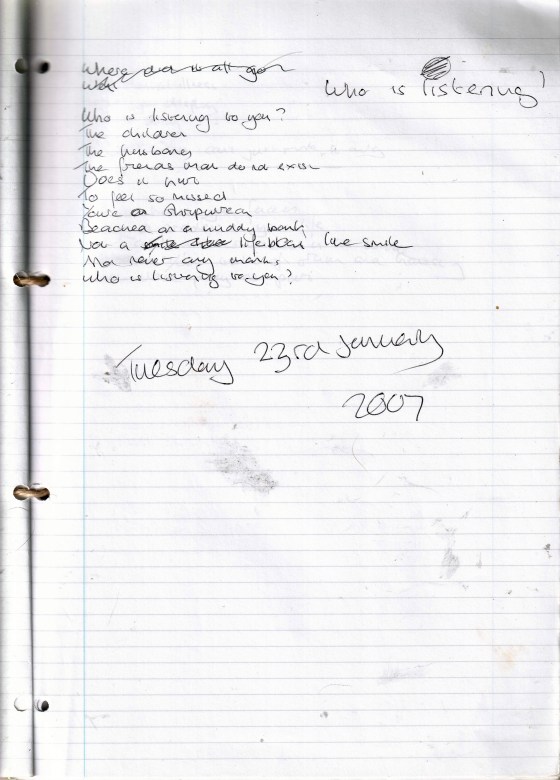 Where did it all go
Who is listening?
Who is listening to you?
The children
The husbands
The friends that do not exist
Does it hurt
To feel so missed
You're a Shipwreck
Beached on a muddy bank
Not a lifeboat like smile
Not never any marks
Who is listening to you?
Tuesday 23rd January
2007